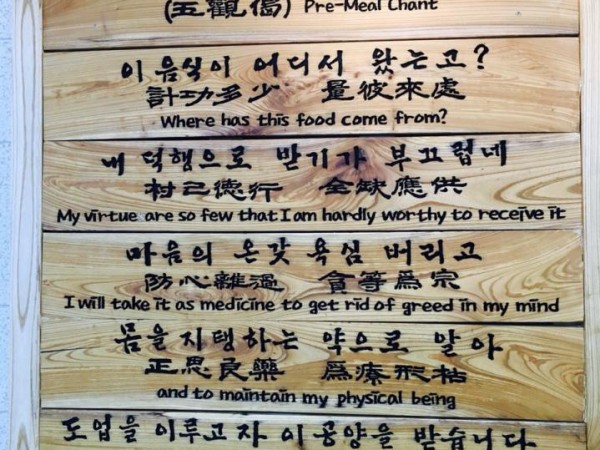 (五觀偈) Pre-Meal Chant
이 음식이 어디서 왔는고?
計功多少 量彼來處
Where has this food come from?
내 덕행으로 받기가 부끄럽네
村己德行 全缺應供
My virtue are so few that I am hardly worthy to receive it
마음의 온갖 욕심 버리고
防心離過 貪等爲宗
I will take it as medicine to get rid of greed in my mind
몸을 지탱하는 약으로 알아
正思良藥 爲療形枯
and to maintain my physical being
도업을 이루고자 이 공양을 받습니다